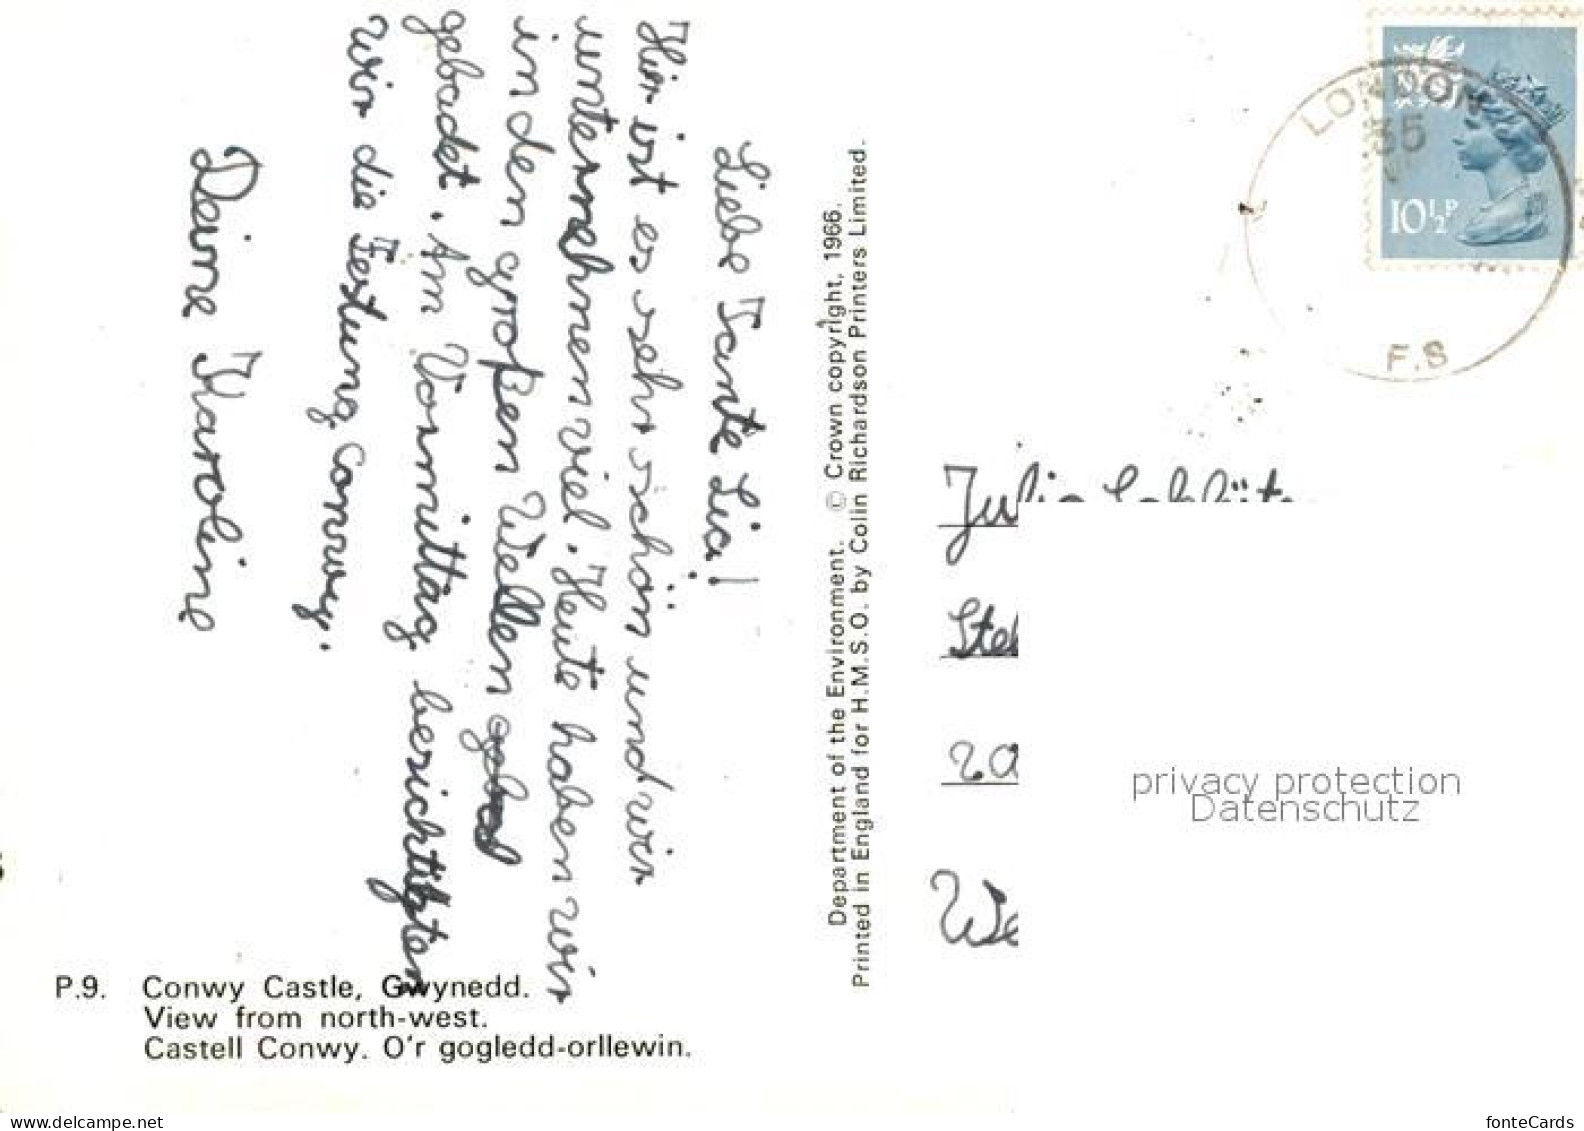 Liebe Tante Lici!
Hier ist es sehr schön und wir
unternehmen viel. Heute haben wir
in den großen Wellen
gebadet. Am Vormittag besichtigten
wir die Festung Conway.
Deine Karoline
Department of the Environment. © Crown copyright, 1966.
Printed in England for H.M.S.O. by Colin Richardson Printers Limited.
LONDON
35
F.S
10½P
Ju
privacy protection
Datenschutz
P.9. Conwy Castle, Gwynedd.
View from north-west.
Castell Conwy. O'r gogledd-orllewin.
www.delcampe.net
fonteCards